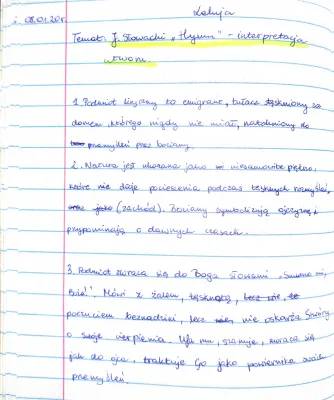 Lekcja
08.01.20r.
Temat: J. Słowacki „Hymn" - interpretacja
utworu.
1. Podmiot liryczny to emigrant, tułacz tęskniony za
domem, którego nigdy nie miał, natchniony do
przemyśleń przez bociany.
2. Natura jest ukazana jako niesamowite piękno,
które nie daje pocieszenia podczas tęsknych rozmyśleń,
(zachód). Bociany symbolizują ojczyznę i
przypominają o dawnych czasach.
3. Podmiot zwraca się do Boga słowami „Smutno mi,
Boże!". Mówi z żalem, tęsknotą,
poczuciem beznadziei, lecz nie oskarża Stwórcy
o swoje cierpienia. Ufa mu, szanuje, zwraca się
jak do ojca, traktuje Go jako powiernika swoich
przemyśleń.